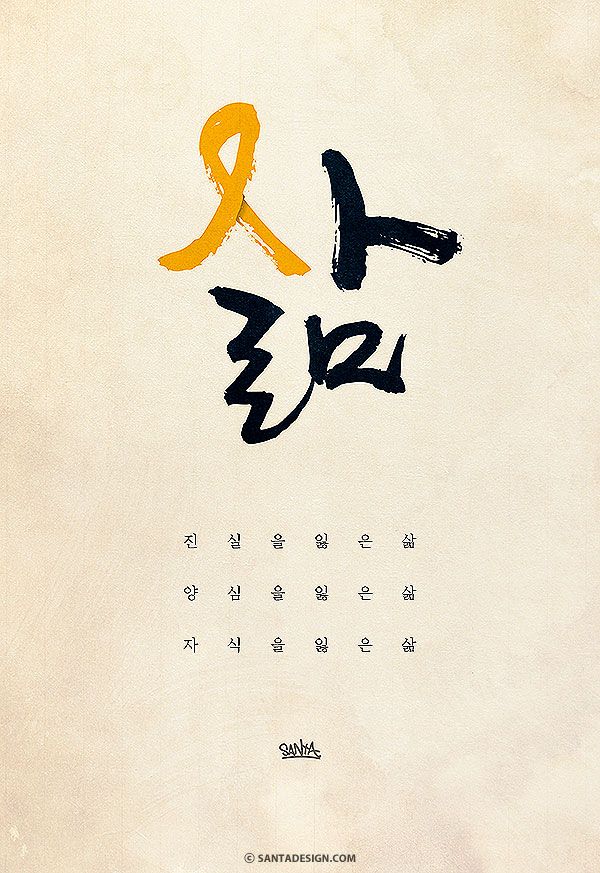 삶
진 실 을 잃 은 삶
양 심 을 잃 은 삶
자 식 을 잃 은 삶
SANTA
© SANTADESIGN.COM